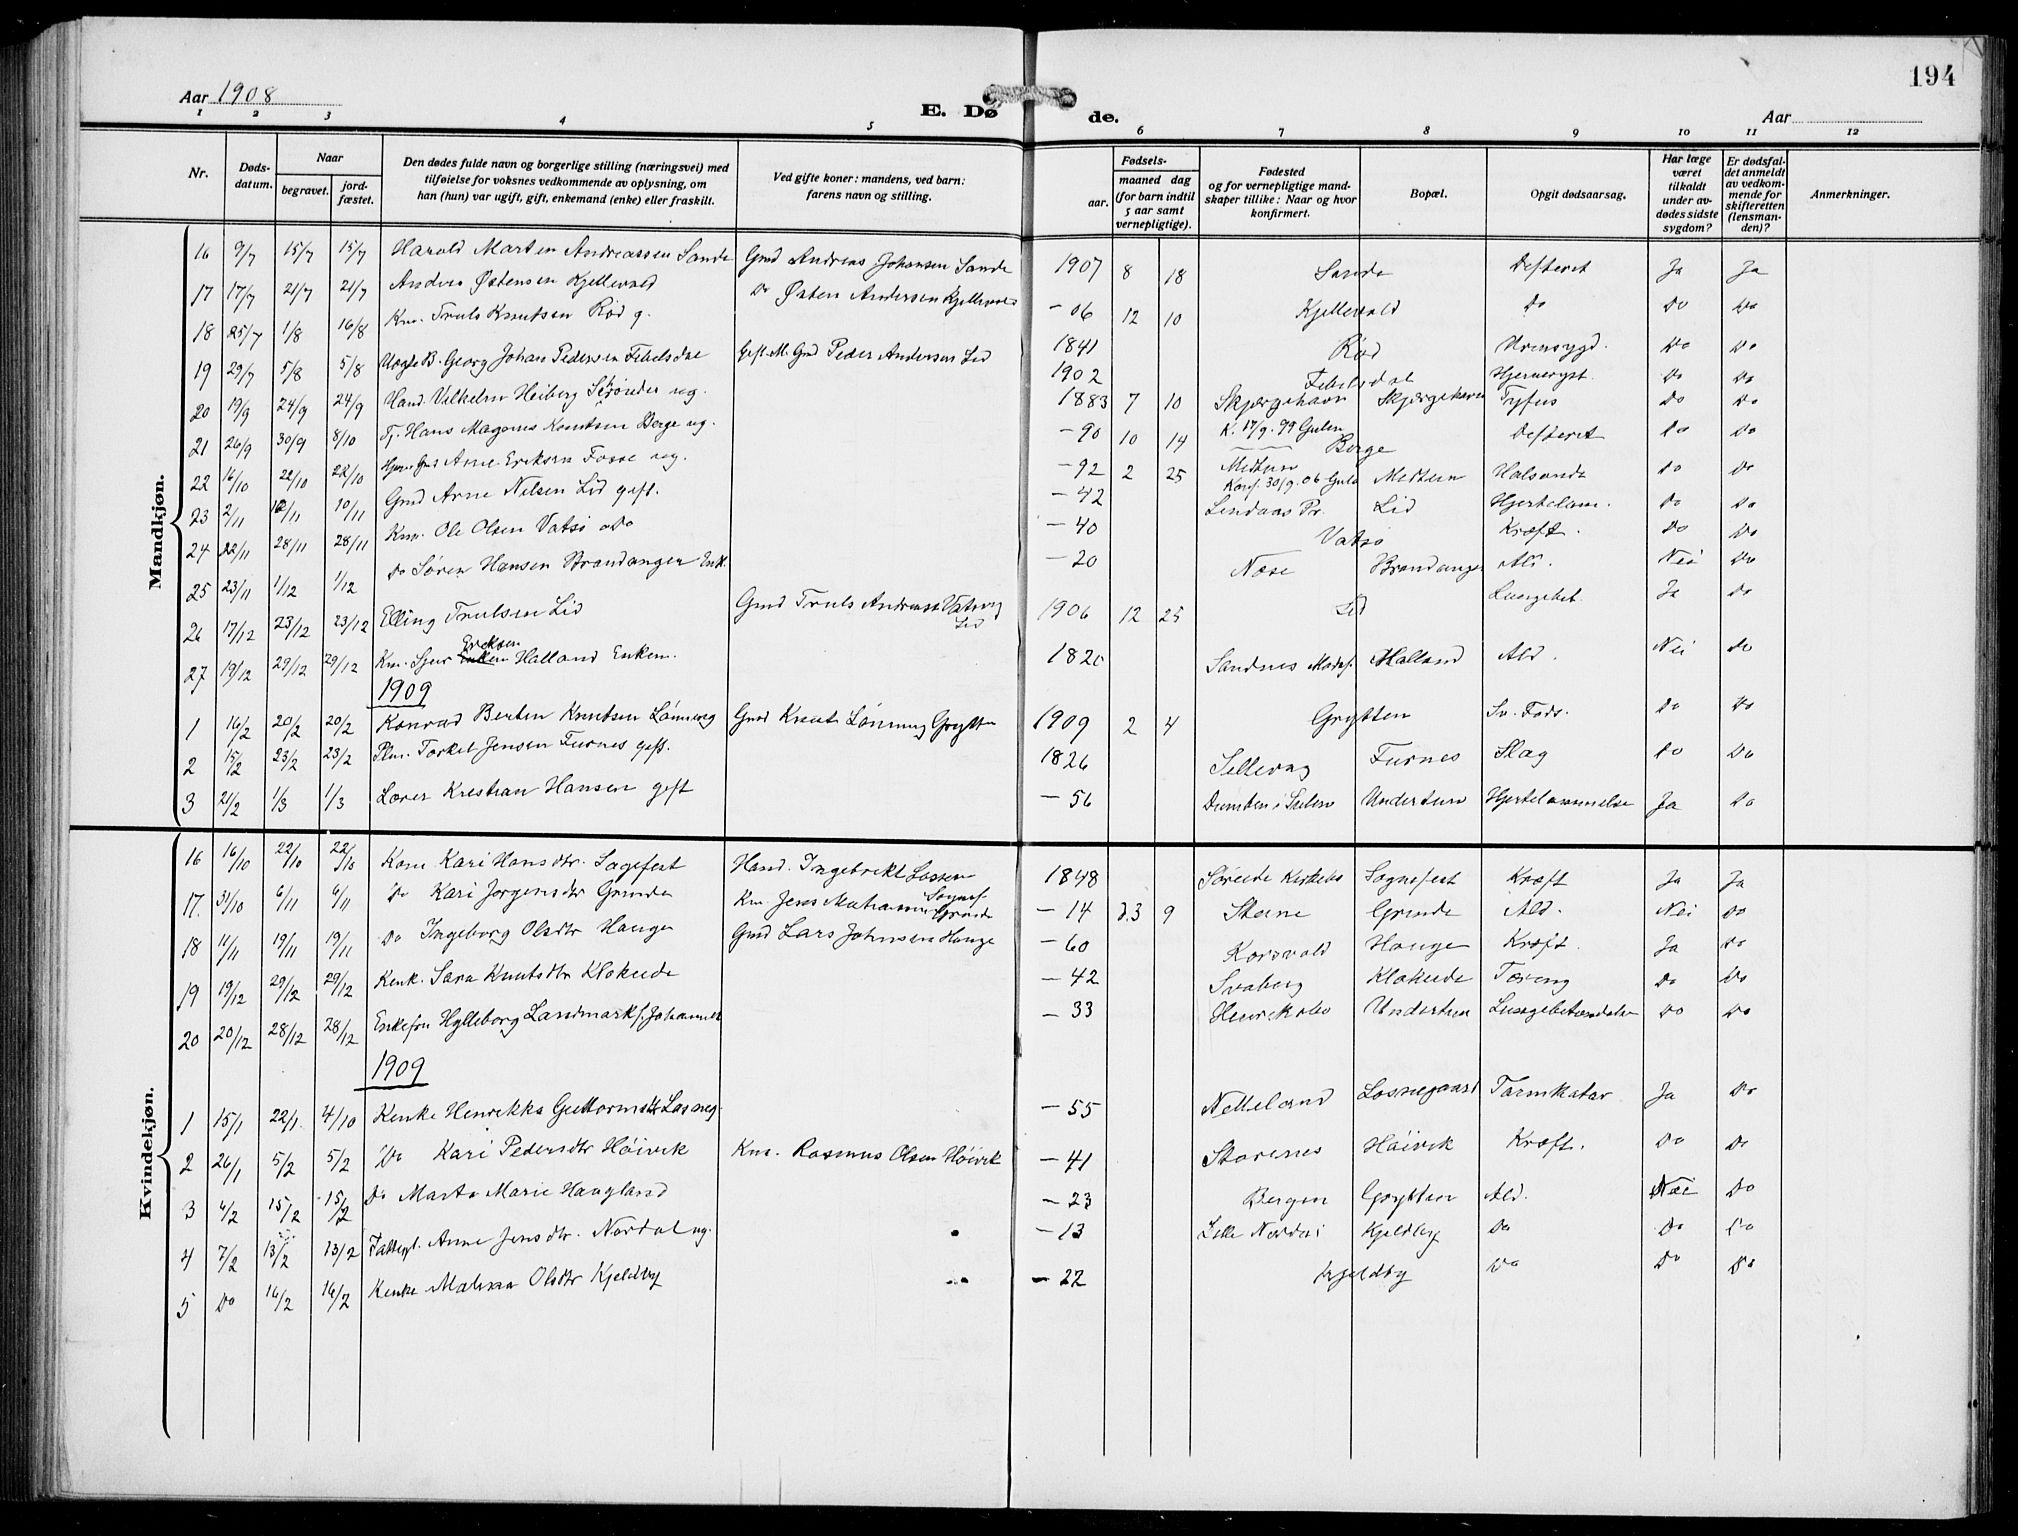 Aar 1908
E. Døde.
Aar
194
1 2 3 4 5 6 7 8 9 10 11 12
Nr.
Døds-
datum.
Naar
begravet.
jord-
fæstet.
Den dødes fulde navn og borgerlige stilling (næringsvei) med
tilføielse for voksnes vedkommende av oplysning, om
han (hun) var ugift, gift, enkemand (enke) eller fraskilt.
Ved gifte koner: mandens, ved barn:
farens navn og stilling.
Fødsels-
aar.
maaned dag
(for barn indtil
5 aar samt
vernepligtige).
Fødested
og for vernepligtige mand-
skaper tillike: Naar og hvor
konfirmert.
Bopæl.
Opgit dødsaarsag.
Har læge
været
tilkaldt
under av-
dødes sidste
sygdom?
Er dødsfal-
det anmeldt
av vedkom-
mende for
skifteretten
(lensman-
den)?
Anmerkninger.
Mandkjøn.
16 9/7 15/7 15/7 Harald Martin Andreassen Sande Gmd Andreas Johansen Sande 1907 8 18 Sande Defteret Ja Ja
17 17/7 21/7 21/7 Anders Østensen Kjellevold Do Østen Andersen Kjellevold - 06 12 10 Kjellevold Do Do Do
18 25/7 1/8 16/8 Km. Truls Knutsen Röd g. 1841 Röd Do Do
19 29/7 5/8 5/8 Georg Johan Pedersen Peder Andersen Lid 1902 Do Do
20 19/9 24/9 24/9 Hand. Vilhelm Heiberg ug. 1883 7 10 Skjærgehavn Skjærgehavn Tyfus Do Do
K. 17/9. 99 Gulen
21 26/9 30/9 8/10 Tj. Hans Magnus Knutsen Berge ug. - 90 10 14 Berge Defteret Do Do
22 16/10 22/10 22/10 Arne Eriksen Fosse ug. - 92 2 25 Midtun Midtun Do Do
Konf. 30/9. 06
23 2/11 10/11 Gmd Arne Nilsen Lid gift. - 42 Lindaas Pr. Lid Hjertelam. Do Do
24 22/11 28/11 28/11 Km. Ole Olsen Vatsö Do - 40 Vatsö Kræft. Do Do
25 23/11 1/12 1/12 Do Sören Hansen Brandanger Enk. - 20 Næse Brandanger Ald. Nei Do
26 17/12 23/12 23/12 Elling Trulsen Lid Gmd Truls 1906 12 25 Lid Lungebet. Ja Do
Lid
27 19/12 29/12 29/12 Km. Sjur Eriksen Halland Enkem. 1820 Sandnes Halland Ald. Nei Do
1909
1 16/2 20/2 20/2 Konrad Berten Knutsen Lönning Gmd Knut Lönning Grytten 1909 2 4 Grytten Sv. Föds. Do Do
2 15/2 23/2 23/2 Torkel Jensen Furnes gift. 1826 Sellevag Furnes Slag Do Do
3 21/2 1/3 1/3 Lærer Kristian Hansen gift - 56 Undertun Hjertelammelse Ja Do
Kvindekjøn.
16 16/10 22/10 22/10 Kone Kari Hansdtr. Sognefest Hand. Ingebrikt Lassen 1848 Sognefest Kræft Ja Ja
Sognef.
17. 31/10 6/11 6/11 Do Kari Jörgensdtr Grinde Km. Jens Grinde - 14 9 Steine Grinde Ald. Nei Do
18 11/11 19/11 19/11 Do Ingeborg Olsdtr Hauge Gmd Lars Johnsen Hauge - 60 Korsvold Hauge Kræft. Ja Do
19 19/12 29/12 29/12 Kenk. Sara Knutsdtr Klakeide - 42 Svaberg Klakeide Tæring Do Do
20 20/12 28/12 28/12 Hylleborg Landmark f. Johannes - 33 Undertun Lungebetændelse Do Do
1909
1 15/1 22/1 4/10 Kenke Henrikka Guttormsdtr Losneg. - 55 Netteland Losnegaard Tarmkatar Ja Do
2 26/1 5/2 5/2 Do Kari Pedersdtr Höivik Km. Rasmus Olsen Höivik - 41 Storenes Höivik Kræft. Do Do
3 4/2 15/2 15/2 Do Marta Marie Haugland - 23 Bergen Grytten Ald. Nei Do
4 7/2 13/2 13/2 Anne Jensdtr. Nordal ug. - 13 Kjeldby Do Do Do
5 Do 16/2 16/2 Kenke Olsdtr Kjeldby - 22 Kjeldby Do Do Do